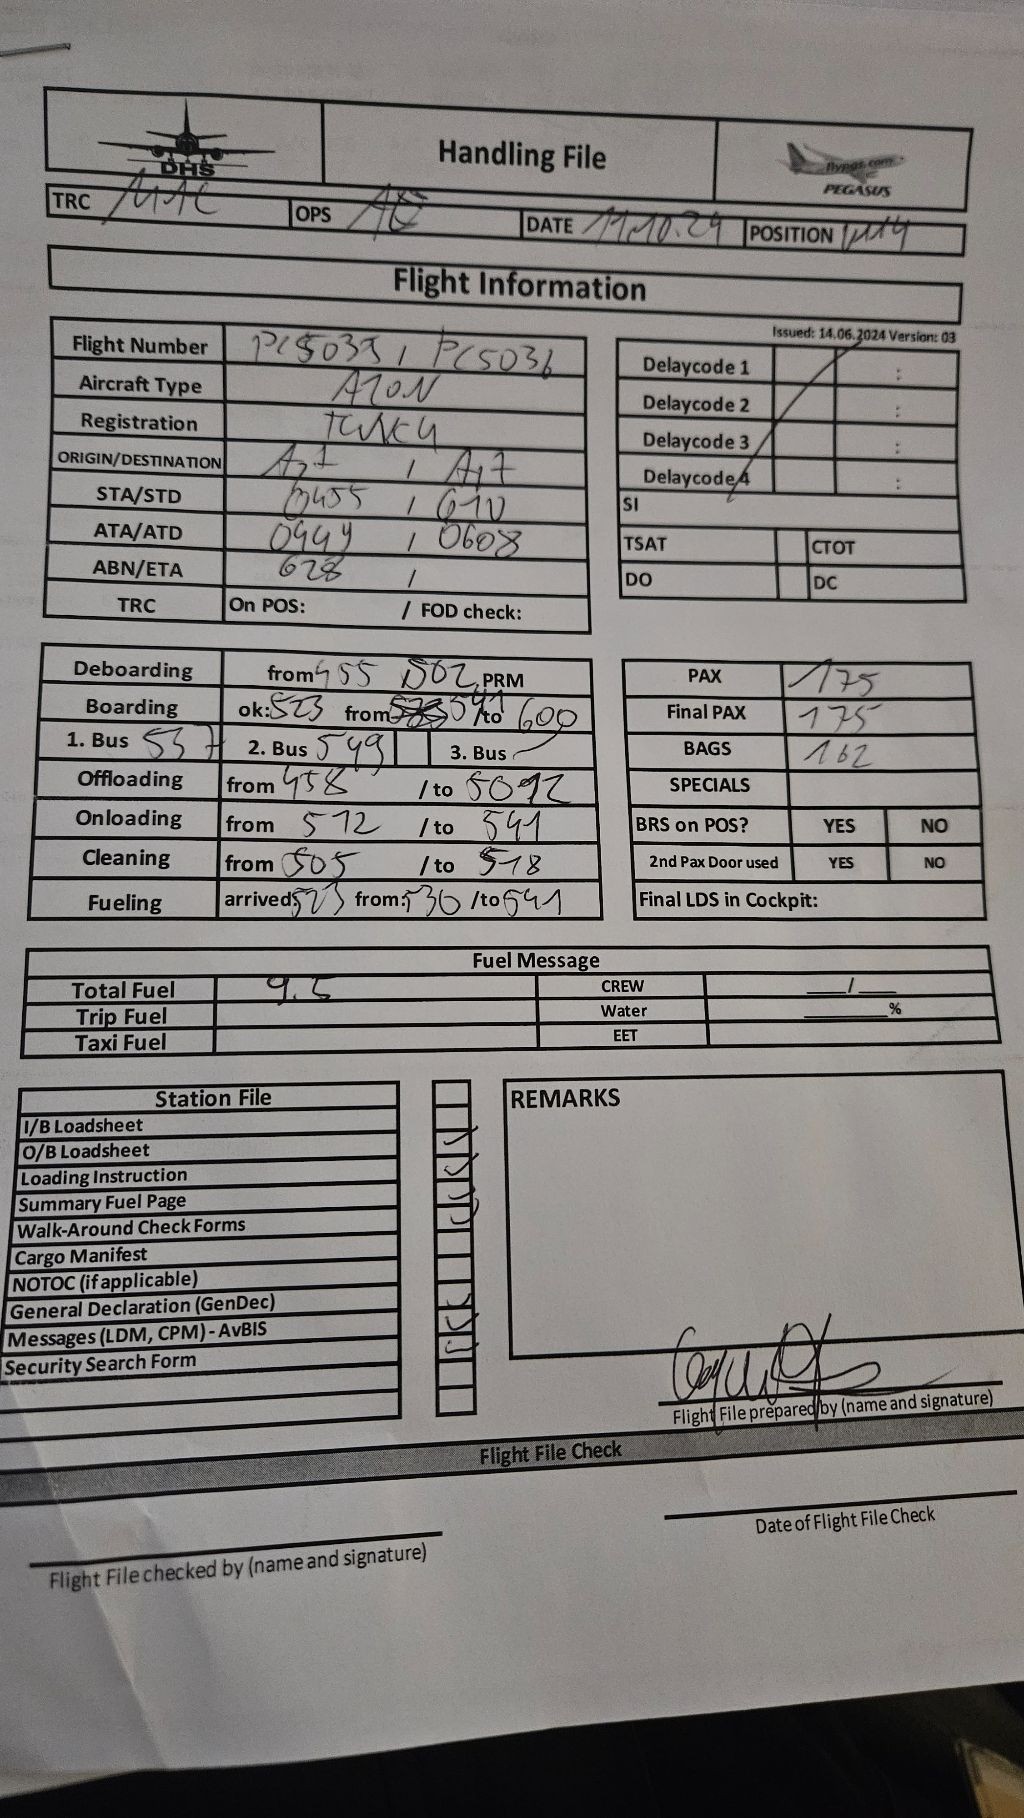 DHS
Handling File
flypgs.com
PEGASUS
TRC MAC OPS DATE 11.10.24 POSITION
Flight Information
Issued: 14.06.2024 Version: 03
Flight Number PC5035 / PC5036
Aircraft Type A20N
Registration TCNCU
ORIGIN/DESTINATION AYT / AYT
STA/STD 0455 / 610
ATA/ATD 0449 / 0608
ABN/ETA 628 /
TRC On POS: / FOD check:
Delaycode 1 :
Delaycode 2 :
Delaycode 3 :
Delaycode 4 :
SI
TSAT CTOT
DO DC
Deboarding from 455 502 PRM
Boarding ok: 523 from 541 /to 600
1. Bus 537 2. Bus 549 3. Bus
Offloading from 458 / to
Onloading from 512 / to 541
Cleaning from 505 / to 518
Fueling arrived: 523 from: 530 /to 541
PAX 175
Final PAX 175
BAGS 162
SPECIALS
BRS on POS? YES NO
2nd Pax Door used YES NO
Final LDS in Cockpit:
Fuel Message
Total Fuel 9.5 CREW ___/___
Trip Fuel Water ________%
Taxi Fuel EET
Station File
I/B Loadsheet
O/B Loadsheet
Loading Instruction
Summary Fuel Page
Walk-Around Check Forms
Cargo Manifest
NOTOC (if applicable)
General Declaration (GenDec)
Messages (LDM, CPM) - AvBIS
Security Search Form
REMARKS
Flight File prepared by (name and signature)
Flight File Check
Flight File checked by (name and signature)
Date of Flight File Check